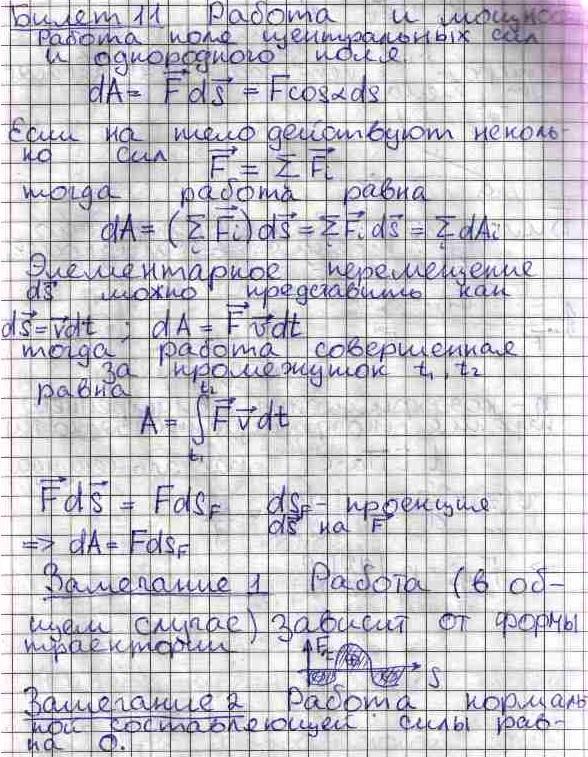 Билет 11 Работа и мощнос
Работа поле центральных сил
и однородного поля.
dA = F⃗ ds⃗ = Fcosαds
Если на тело действуют несколь-
ко сил F⃗ = Σ F⃗i
тогда работа равна
dA = (Σ F⃗i) ds⃗ = Σ F⃗i ds⃗ = Σ dAi
Элементарное перемещение
ds⃗ можно представить как
ds⃗ = v⃗dt ; dA = F⃗ v⃗dt
тогда работа совершенная
за промежуток t₁, t₂
равна
A = ∫ₜ₁ᵗ² F⃗ v⃗ dt
F⃗ ds⃗ = F dsF dsF - проекция
ds⃗ на F⃗
=> dA = F dsF
Замечание 1 Работа (в об-
щем случае) зависит от формы
траектории
Fτ
S
Замечание 2 Работа нормаль
ной составляющей силы рав-
на 0.